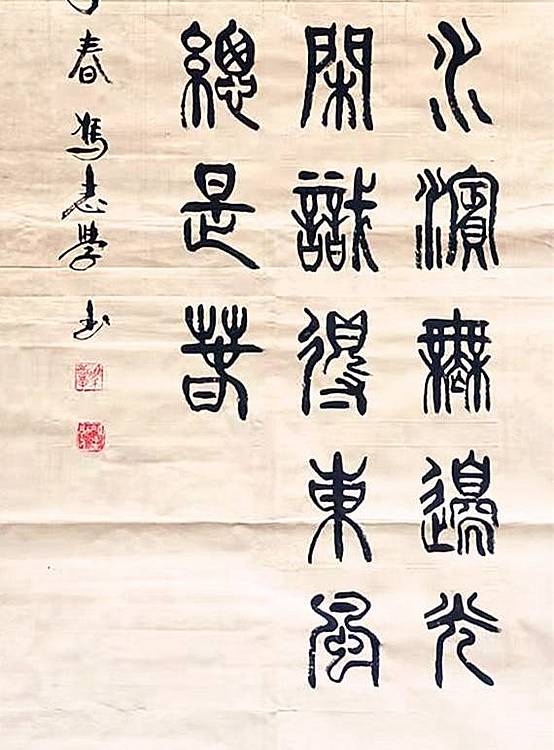 水濱無邊光
閑識得東風
總是春
春馮志學書